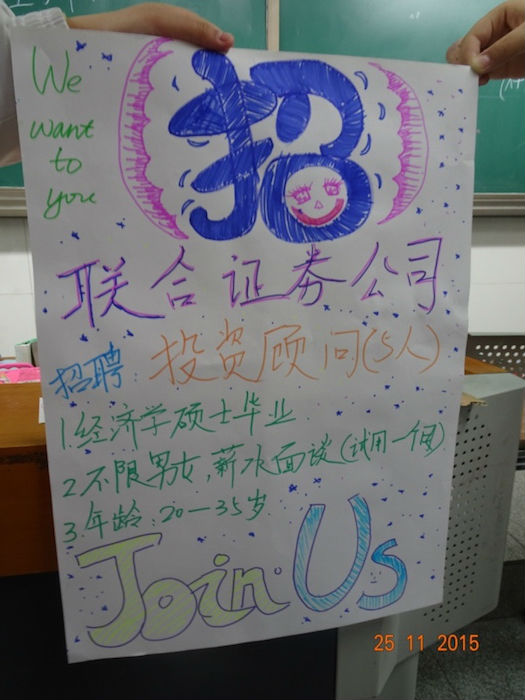 We
want
to
you
招
联合证券公司
招聘: 投资顾问(5人)
1.经济学硕士毕业
2.不限男女,薪水面谈(试用一个月)
3.年龄:20—35岁
Join Us
25 11 2015